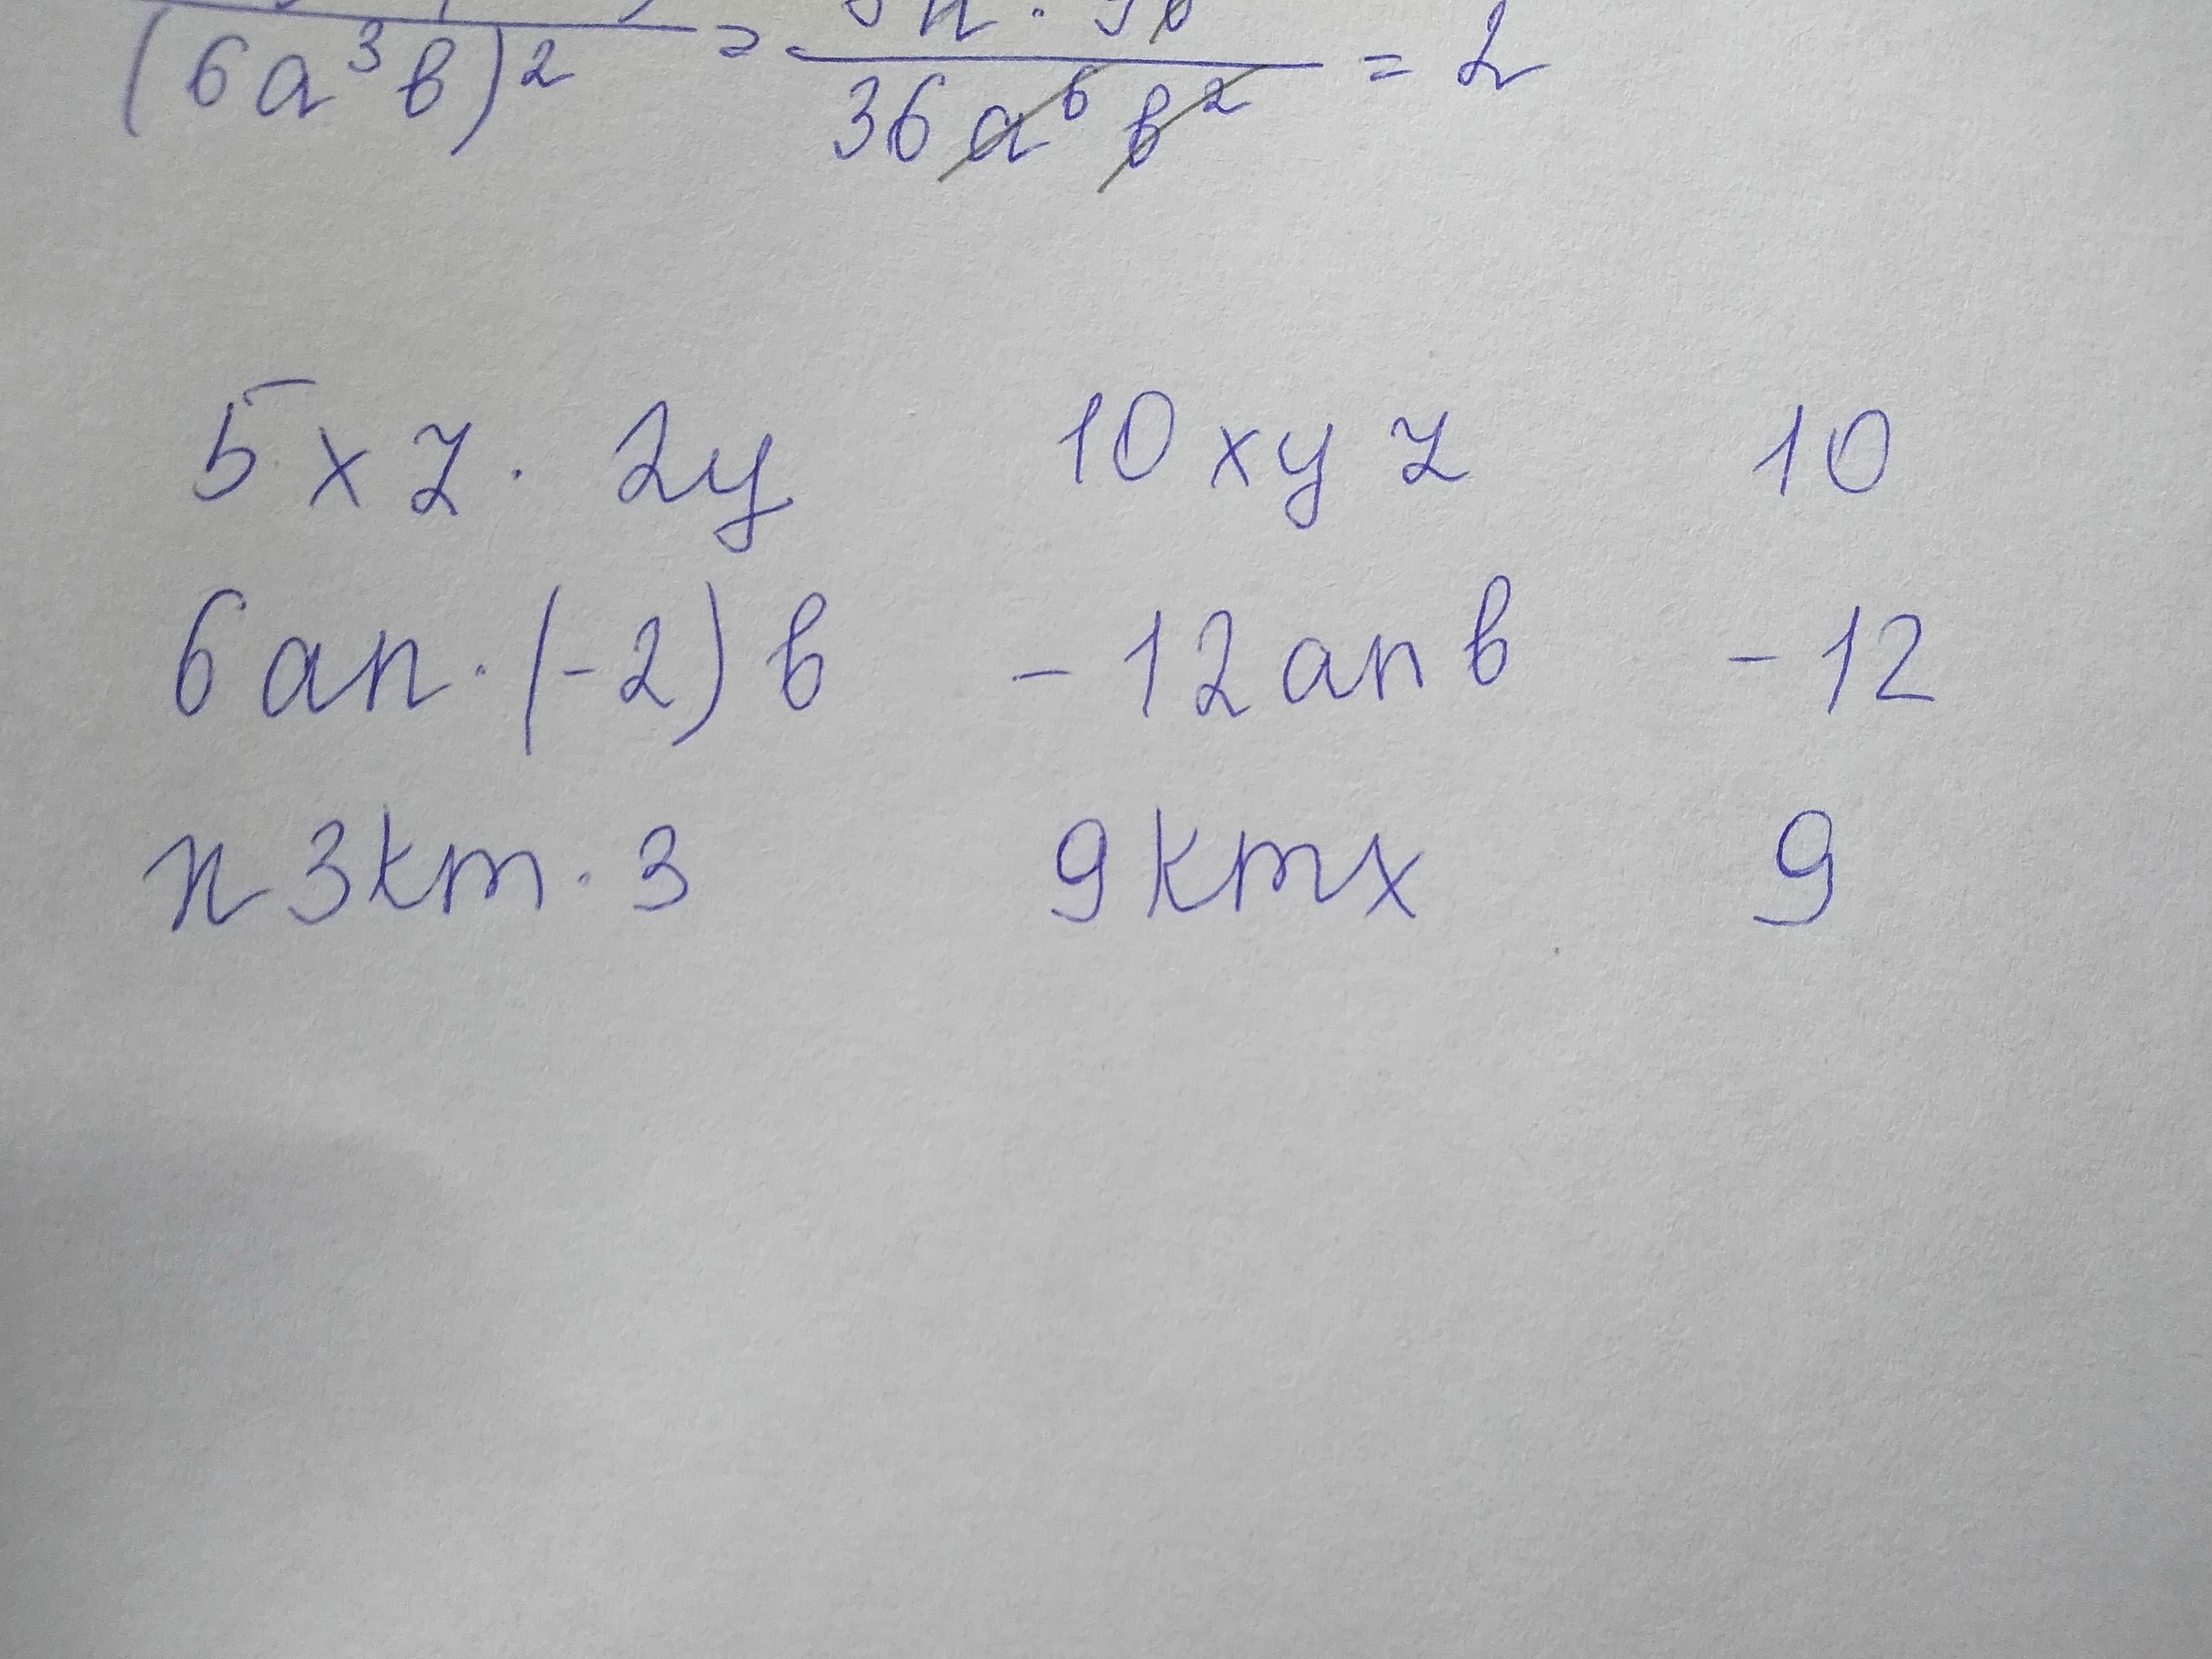 (6a³b)² = 36a⁶b² = 2
5xz · 2y 10xyz 10
6an · (-2)b -12anb -12
3km · 3 9kmx 9